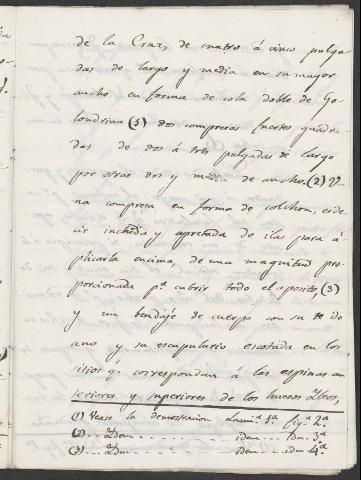 de la Cruz, de cuatro á cinco pulga
das de largo y media en su mayor
ancho en forma de cola doble de Go-
londrina (5) dos compresas fuertes quadra
das de dos á tres pulgadas de largo
por otras dos y media de ancho. (2) U-
na compresa en forma de colchon, es de
cir inchada y apretada de ilas para á
plicarla encima, de una magnitud pro-
porcionada pª cubrir todo el aposito, (3)
y un bendaje de cuerpo con su te de
ano y su escapulario escotada en los
sitios qe correspondan á las espinas an
teriores y superiores de los huesos Ileos,
(1) Vease la demostracion Lamª 1ª figª 2ª
(2) Idem idem idm 3ª
(3) Idm idem idm 4ª